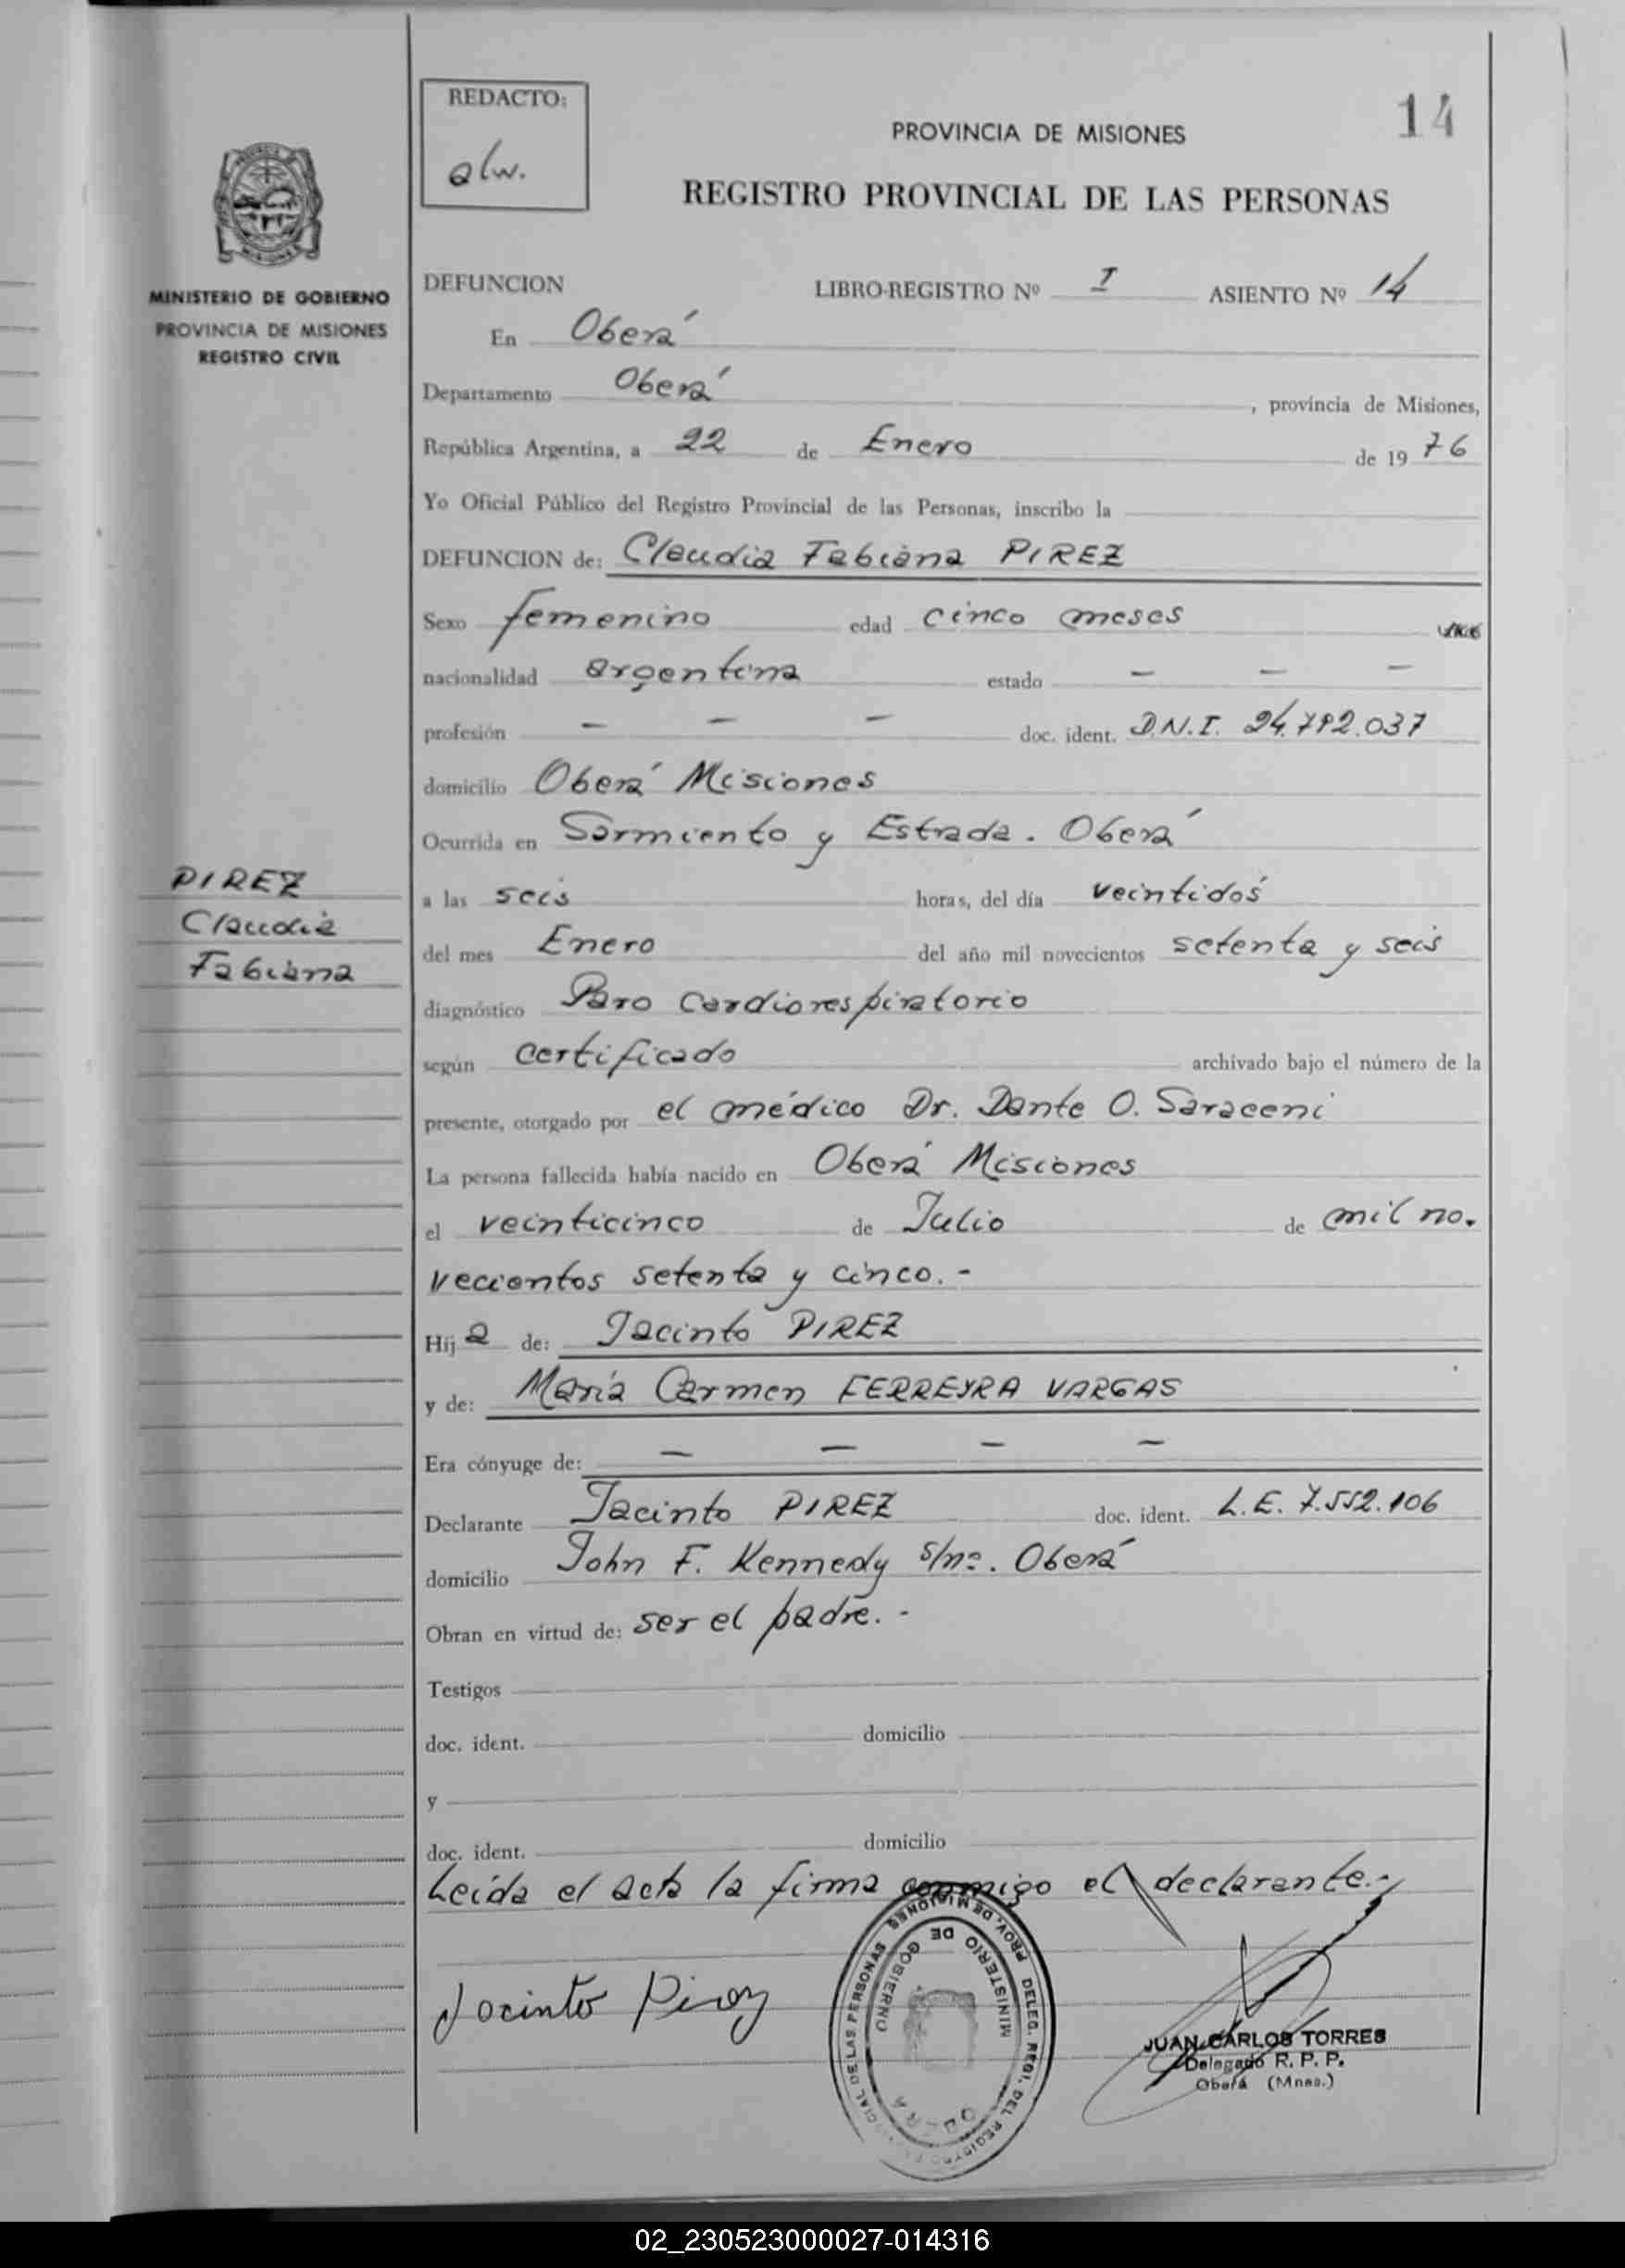 REDACTO:
alw.
14
PROVINCIA DE MISIONES
REGISTRO PROVINCIAL DE LAS PERSONAS
MINISTERIO DE GOBIERNO
PROVINCIA DE MISIONES
REGISTRO CIVIL
DEFUNCION LIBRO-REGISTRO Nº I ASIENTO Nº 14
En Oberá
Departamento Oberá, provincia de Misiones,
República Argentina, a 22 de Enero de 1976
Yo Oficial Público del Registro Provincial de las Personas, inscribo la
DEFUNCION de: Claudia Fabiana PIREZ
Sexo femenino edad cinco meses
nacionalidad argentina estado — — —
profesión — — — doc. ident. D.N.I. 24.792.037
domicilio Oberá Misiones
Ocurrida en Sarmiento y Estrada. Oberá
PIREZ
Claudia
Fabiana
a las seis horas, del día veintidós
del mes Enero del año mil novecientos setenta y seis
diagnóstico Paro cardiorespiratorio
según certificado archivado bajo el número de la
presente, otorgado por el médico Dr. Dante O. Saraceni
La persona fallecida había nacido en Oberá Misiones
el veinticinco de Julio de mil no.
vecientos setenta y cinco.-
Hija de: Jacinto PIREZ
y de: María Carmen FERREYRA VARGAS
Era cónyuge de: — — — —
Declarante Jacinto PIREZ doc. ident. L.E. 7.552.106
domicilio John F. Kennedy s/nº. Oberá
Obran en virtud de: ser el padre.-
Testigos
doc. ident. domicilio
y
doc. ident. domicilio
Leída el acta la firma conmigo el declarante.-
Jacinto Pirez
PROV. DE MISIONES DELEG. REGI. DEL REGISTRO PROVINCIAL DE LAS PERSONAS
MINISTERIO DE GOBIERNO
OBERA
JUAN CARLOS TORRES
Delegado R. P. P.
Oberá (Mnes.)
02_230523000027-014316